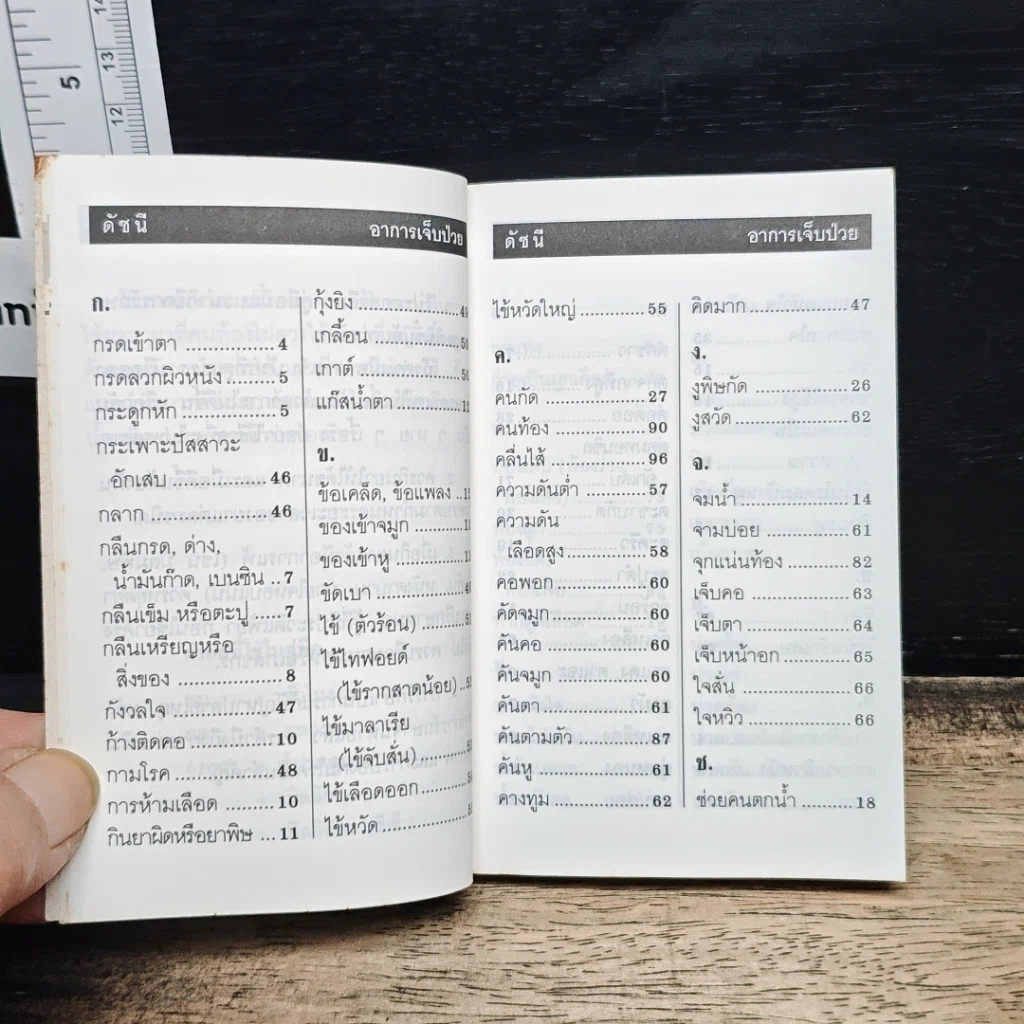 5
14
13
12
ดัชนี อาการเจ็บป่วย
ก.
กรดเข้าตา ........... 4
กรดลวกผิวหนัง ....... 5
กระดูกหัก ........... 5
กระเพาะปัสสาวะ
อักเสบ ............ 46
กลาก ............... 46
กลืนกรด, ด่าง,
น้ำมันก๊าด, เบนซิน .. 7
กลืนเข็ม หรือตะปู .... 7
กลืนเหรียญหรือ
สิ่งของ ............. 8
กังวลใจ ............ 47
ก้างติดคอ ........... 10
กามโรค ............. 48
การห้ามเลือด ........ 10
กินยาผิดหรือยาพิษ ... 11
กุ้งยิง ...............
เกลื้อน ..............
เกาต์ ................
แก๊สน้ำตา ............
ข.
ข้อเคล็ด, ข้อแพลง ..
ของเข้าจมูก ..........
ของเข้าหู ............
ขัดเบา ...............
ไข้ (ตัวร้อน) .........
ไข้ไทฟอยด์
(ไข้รากสาดน้อย) ..
ไข้มาลาเรีย
(ไข้จับสั่น) ........
ไข้เลือดออก .........
ไข้หวัด ..............
ดัชนี อาการเจ็บป่วย
ไข้หวัดใหญ่ ........... 55
ค.
คนกัด ............... 27
คนท้อง .............. 90
คลื่นไส้ .............. 96
ความดันต่ำ .......... 57
ความดัน
เลือดสูง ............ 58
คอพอก .............. 60
คัดจมูก .............. 60
คันคอ ............... 60
คันจมูก .............. 60
คันตา ............... 61
คันตามตัว ........... 87
คันหู ................ 61
คางทูม .............. 62
คิดมาก .............. 47
ง.
งูพิษกัด ............. 26
งูสวัด ............... 62
จ.
จมน้ำ ............... 14
จามบ่อย ............ 61
จุกแน่นท้อง ......... 82
เจ็บคอ .............. 63
เจ็บตา .............. 64
เจ็บหน้าอก .......... 65
ใจสั่น ............... 66
ใจหวิว .............. 66
ช.
ช่วยคนตกน้ำ ........ 18